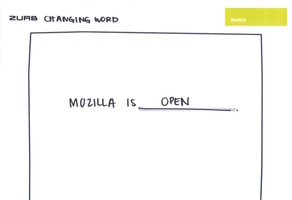 ZURB CHANGING WORD
Sketch
MOZILLA IS OPEN